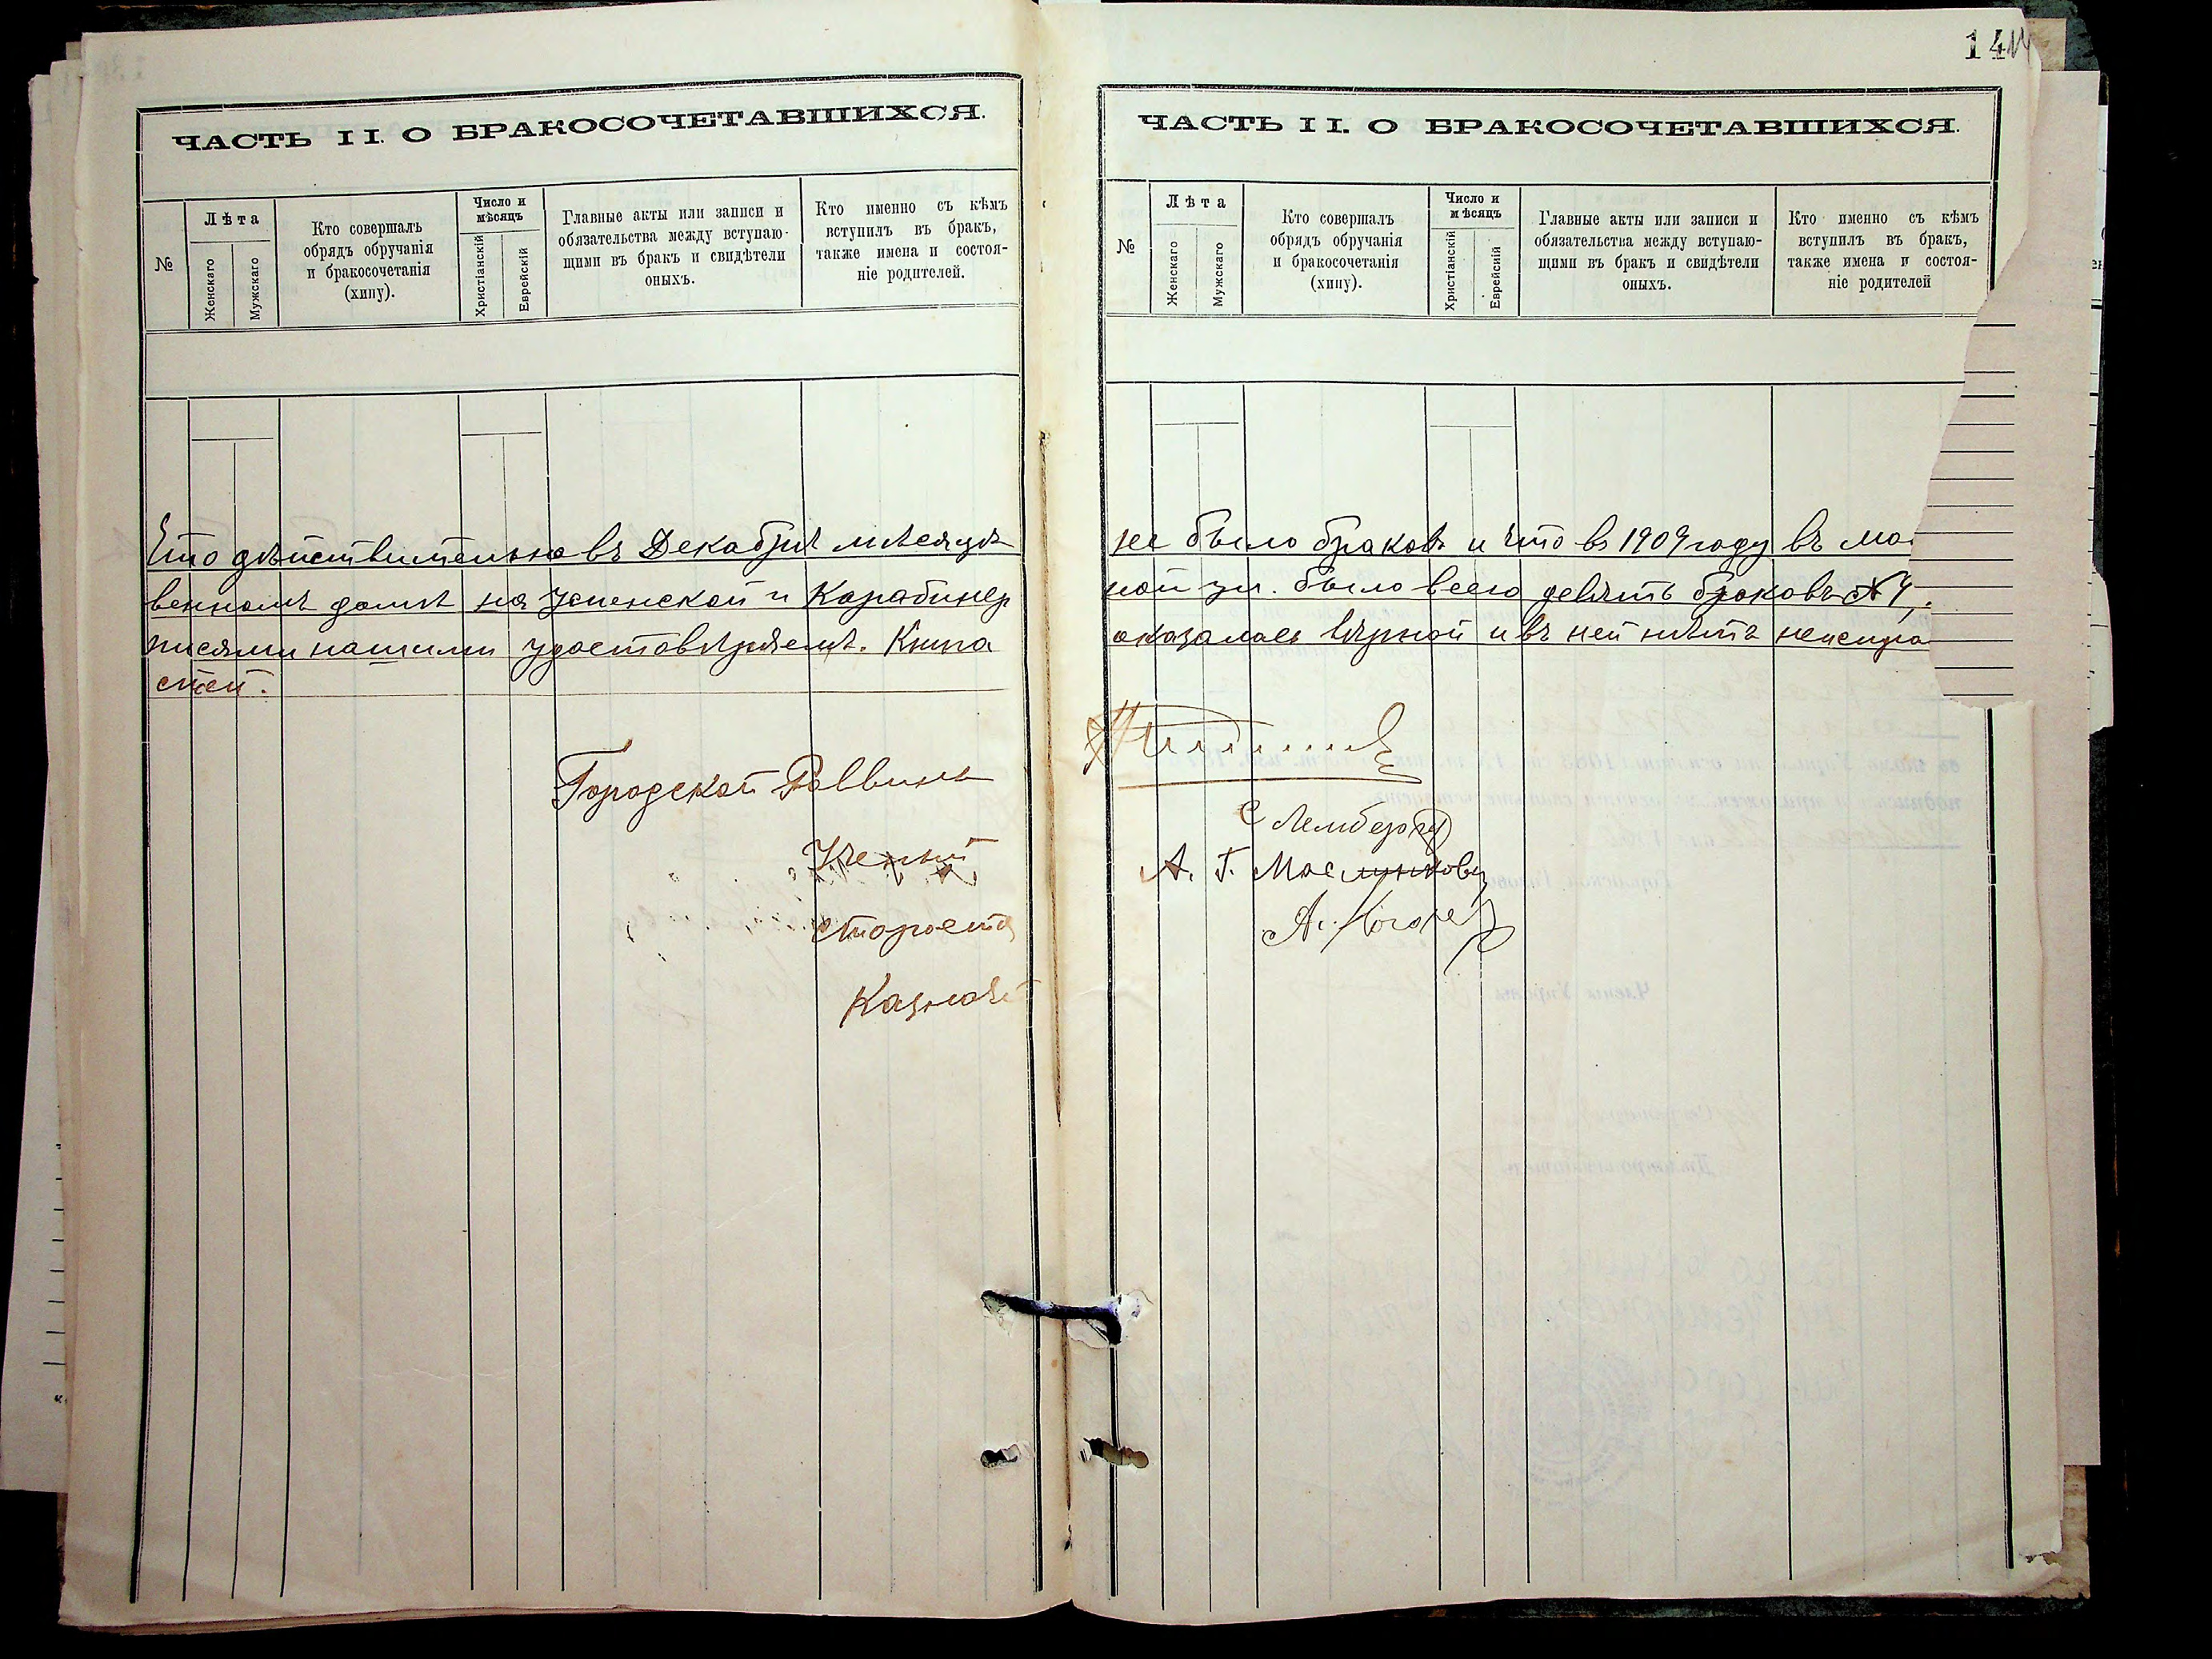 14
ЧАСТЬ II. О БРАКОСОЧЕТАВШИХСЯ.
№
Лѣта
Женскаго
Мужскаго
Кто совершалъ
обрядъ обручанія
и бракосочетанія
(хипу).
Число и
мѣсяцъ
Христіанскій
Еврейскій
Главные акты или записи и
обязательства между вступаю-
щими въ бракъ и свидѣтели
оныхъ.
Кто именно съ кѣмъ
вступилъ въ бракъ,
также имена и состоя-
ніе родителей.
Что дѣйствительно въ Декабрѣ мѣсяцѣ
венномъ домѣ на Успенской и Карабинер
писями нашими удостовѣряемъ. Книга
стей.
Городской Раввинъ
Ученый
Староста
Казначей
ЧАСТЬ II. О БРАКОСОЧЕТАВШИХСЯ.
№
Лѣта
Женскаго
Мужскаго
Кто совершалъ
обрядъ обручанія
и бракосочетанія
(хипу).
Число и
мѣсяцъ
Христіанскій
Еврейсній
Главные акты или записи и
обязательства между вступаю-
щими въ бракъ и свидѣтели
оныхъ.
Кто именно съ кѣмъ
вступилъ въ бракъ,
также имена и состоя-
ніе родителей
не было браковъ и что въ 1909 году въ мо
ной ул. было всего девять браковъ
оказалась вѣрной и въ ней нѣтъ неиспра
С Лембергъ
А. Г. Маслянковъ